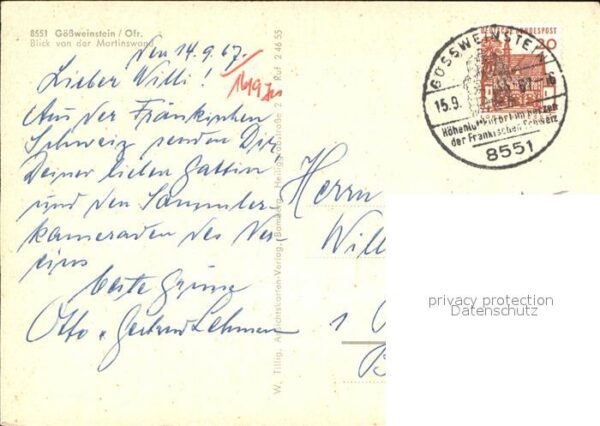 8551 Gößweinstein / Ofr.
Blick von der Martinswand
den 14.9.67.
Lieber Willi!
Aus der Fränkischen
Schweiz senden Dir
Deiner lieben Gattin
und den Sammler-
kameraden des Ver-
eins
beste Grüsse
Otto u. Gertrud Lehmann
W. Tillig, Ansichtskarten-Verlag, Bamberg, Ruf 2 46 55
DEUTSCHE BUNDESPOST
20
GÖSSWEINSTEIN
15.9. 67-16
Höhenluftkurort im Herzen
der Fränkischen Schweiz
8551
Herrn
Will
1
B
privacy protection
Datenschutz